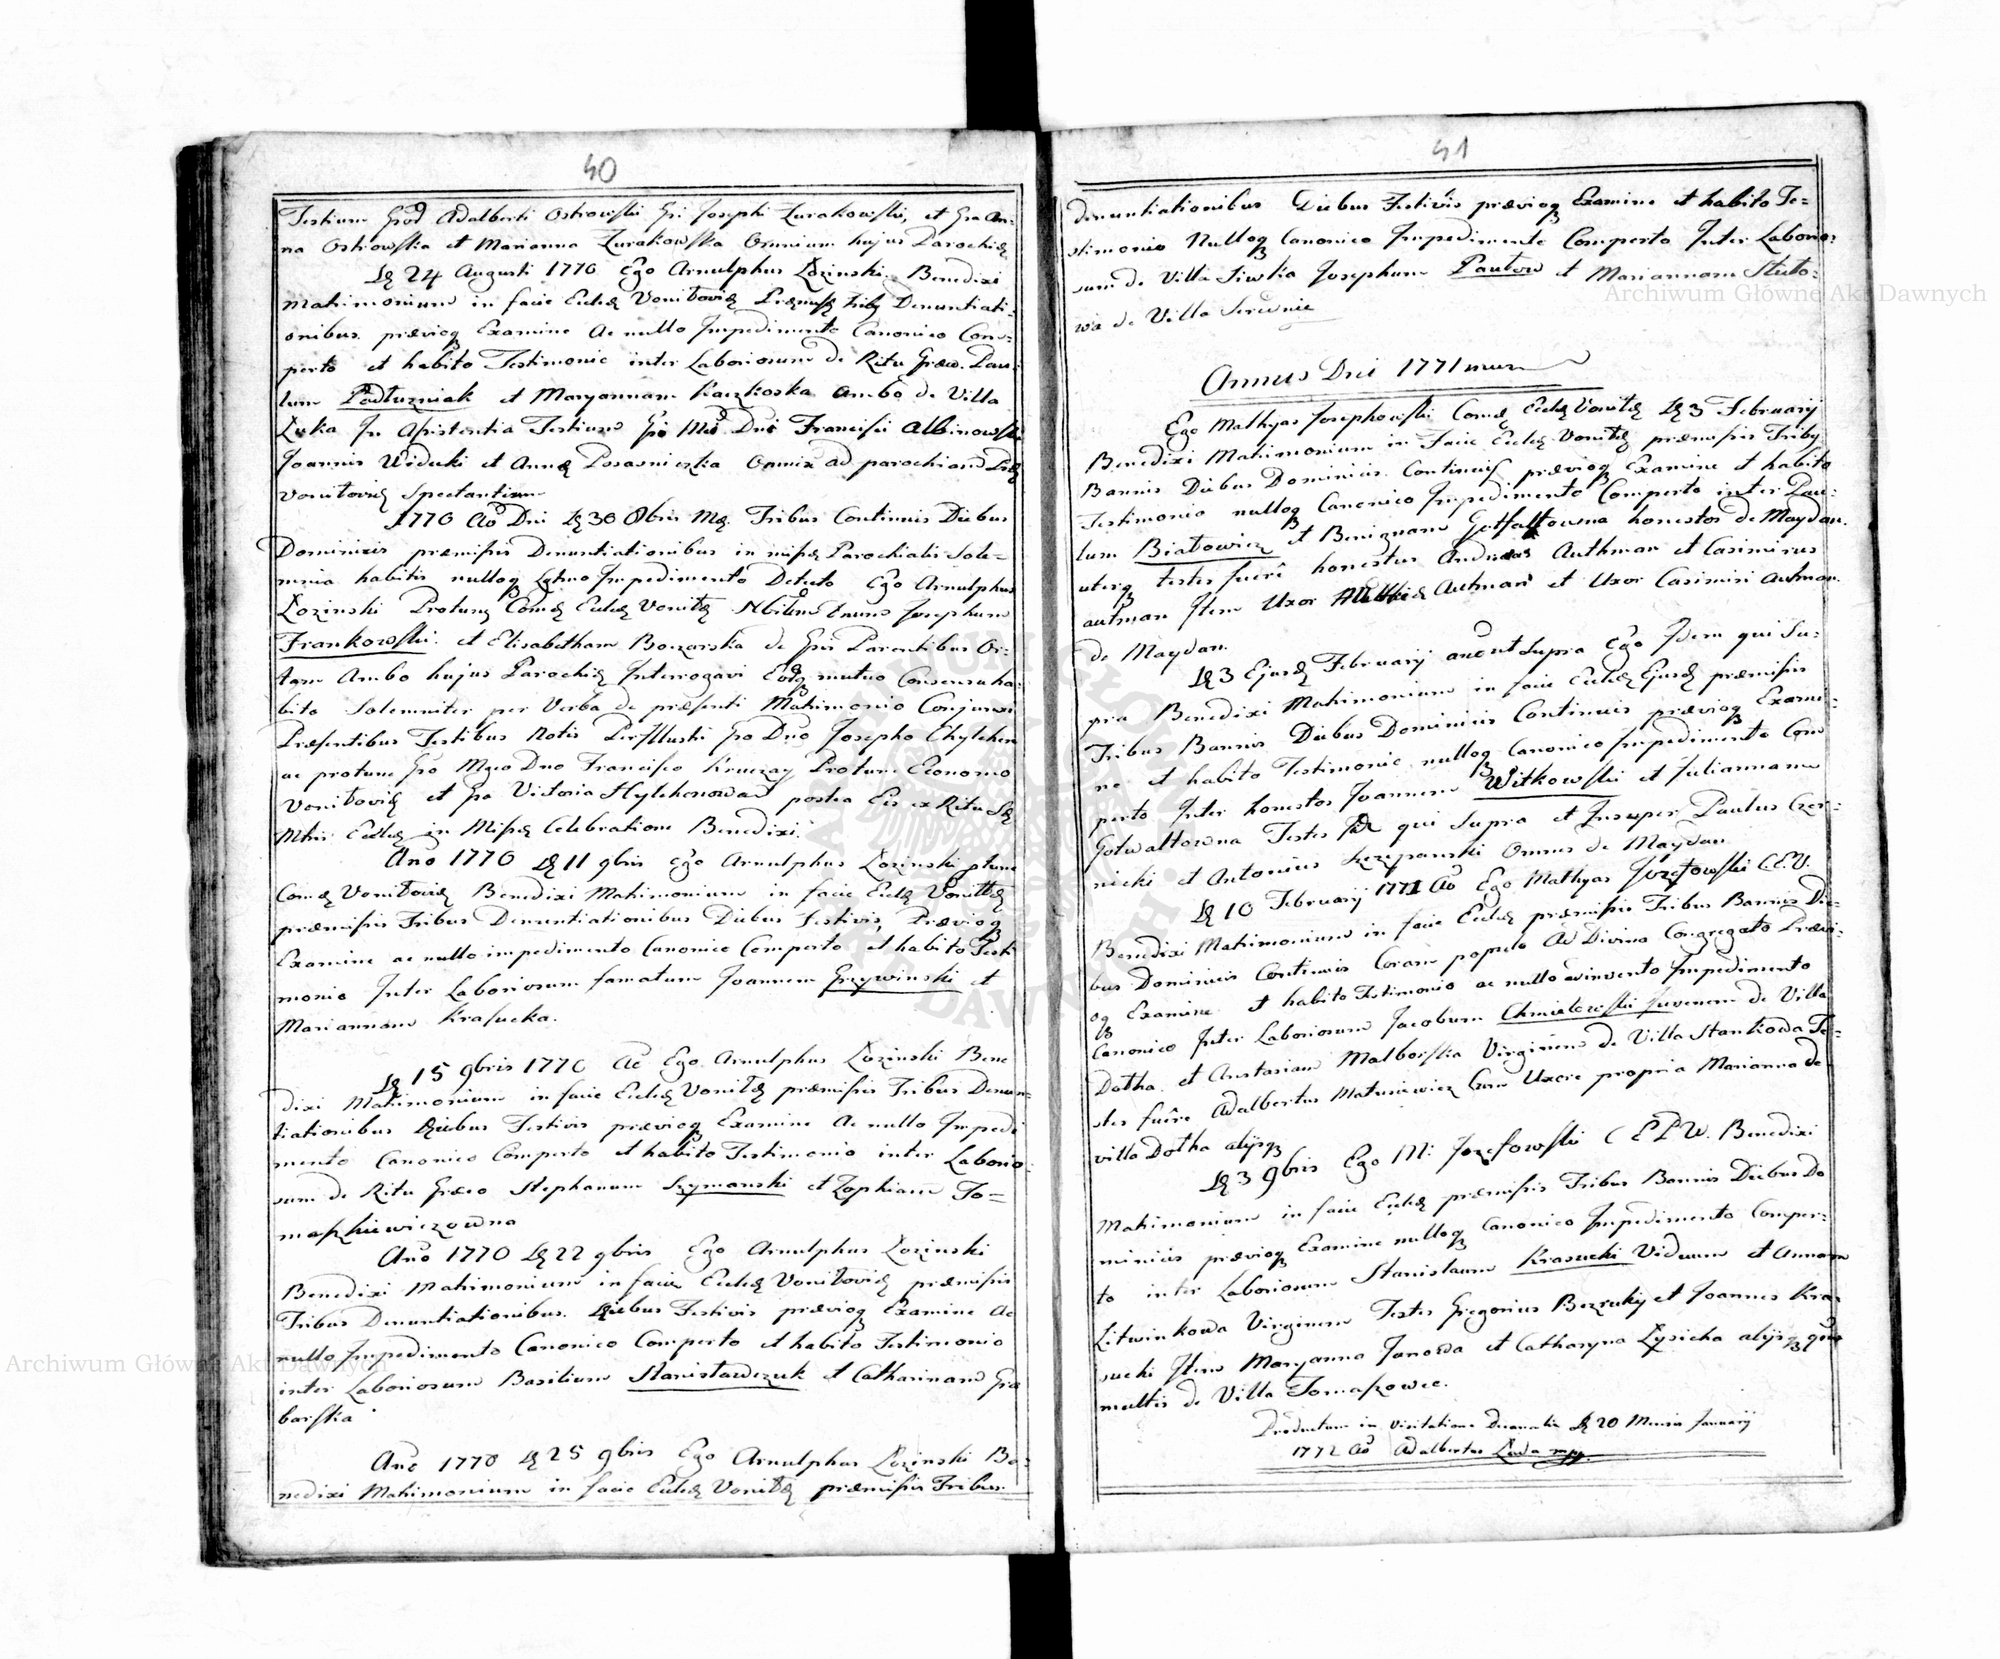 40
Testium Grod Adalberti Ostrowski Gsi Josephi Zurakowski, et Gsa An-
na Ostrowska et Marianna Zurakowska Omnium hujus Parochię
Dę 24 Augusti 1770 Ego Arnulphus Łozinski Benedixi
Matrimonium in facie Ecclę Voniłovię Præmissę Tribꝫ Denuntiati-
onibus prævioqꝫ Examine Ac nullo Impedimento Canonico Com-
perto et habito Testimonio inter Laboriosum de Ritu Græco Pau-
lum Padłuzniak et Maryannam Kaczkoska ambo de Villa
Łuka In Assistentia Testium Gsi Mci Dni Francisci Albinowski
Joannis Widuki et Annę Posasnieska Omnix ad parochiam
Voniłovię Spectantium
1770 Ao Dni Dę 30 8bris Tribus Continuis Diebus
Dominicis præmissis Denuntiationibus in missę Parochialis Sole-
mnia habitis nulloqꝫ Lgtmo Impedimento Detecto Ego Arnulphus
Łozinski Protunc Comdę Ecclę Voniłę Josephum
Frankowski et Elisabetham Boczarska de Gsis Parentibus Or-
tam Ambo hujus Parochię Interrogavi Eosqꝫ mutuo Consensu ha-
bito Solemniter per Verba de præsenti Matrimonio Conjunxi
Præsentibus Testibus Notis Gso Dno Josepho Chylchen
ac protunc Gso Mgco Dno Francisco Kruczay Protunc Economo
Voniłovię et Gsa Victoria Hylchenowa postea Eis ex Ritu Sę
Mtris Ecclę in Missę Celebratione Benedixi.
Ano 1770 Dę 11 9bris Ego Arnulphus Łozinski ptunc
Comdę Voniłovię Benedixi Matrimonium in facie Ecclę Voniłłę
præmissis Tribus Denuntiationibus Diebus Festivis, Prævioqꝫ
Examine ac nullo impedimento Canonico Comperto et habito Testi
monio Inter Laboriosum famatum Joannem Grzywinski et
Mariannam Krasucka.
Dę 15 9bris 1770 Ao Ego Arnulphus Łozinski Bene
dixi Matrimonium in facie Ecclę Voniłę præmissis Tribus Denun-
tiationibus Diebus Festivis prævioqꝫ Examine Ac nullo Impedi
mento Canonico Comperto et habito Testimonio inter Laborio-
sum de Ritu Græco Stephanum Szymanski et Zophiam To-
maszkiewiczowna
Ano 1770 Dę 22 9bris Ego Arnulphus Łozinski
Benedixi Matrimonium in facie Ecclę Voniłovię præmissis
Tribus Denuntiationibus Diebus Festivis prævioqꝫ Examine Ac
nullo Impedimento Canonico Comperto et habito Testimonio
inter Laboriosum Basilium Stanisławczuk et Catharinam Gra
barska
Ano 1770 Dę 25 9bris Ego Arnulphus Łozinski Be-
nedixi Matrimonium in facie Ecclę Voniłę præmissis Tribus
41
denuntiationibus Diebus Festivis prævioqꝫ Examine et habito Te-
stimonio Nulloqꝫ Canonico Impedimento Comperto Inter Laborio-
sum de Villa Siwka Josephum Pautow et Mariannam
wa de Villa Serednie
Annus Dni 1771mus
Ego Mathyas Josephowski Comdę Ecclę Voniłę Dę 3 February
Benedixi Matrimonium in Facie Ecclę Voniłę præmissis Tribꝫ
Bannis Diebus Dominicis Continuis prævioqꝫ Examine et habito
Testimonio nulloqꝫ Canonico Impedimento Comperto inter Pau-
lum Białowicz et Benignam Gotfałtowna honestos de Maydan
uterqꝫ testes fuere honestus Andreas Authman et Casimirus
autman Item Uxor Autman et Uxor Casimiri autman
de Maydan.
Dę 3 Ejusdę February anô ut supra Ego Idem qui Su-
pra Benedixi Matrimonium in facie Ecclę Ejusdę præmissis
Tribus Bannis Diebus Dominicis Continuis prævioqꝫ Exami-
ne et habito Testimonio nulloqꝫ Canonico Impedimento Com
perto Inter honestos Joannem Witkowski et Juliannam
Gotwaltowna Testes qui Supra et Insuper Paulus Czer-
nicki et Antonius Szczepanski Omnes de Maydan
Dę 10 February 1771 Ao Ego Mathyas Jozefowski C.E.V.
Benedixi Matrimonium in facie Ecclę præmissis Tribus Bannis Die-
bus Dominicis Continuis Coram populo Ad Divina Congregato Prævi-
oqꝫ Examine et habito Testimonio ac nullo invento Impedimento
Canonico Inter Laboriosum Jacobum Chmielewski Juvenem de Villa
Dotha et Anastasiam Malborska Virginem de Villa Stankowa Te-
stes fuêre Adalbertus Matusiewicz Cum Uxore propria Marianna de
villa Dotha alijsqꝫ
Dę 3 9bris Ego M: Jozefowski C E P W. Benedixi
Matrimonium in facie Ecclę præmissis Tribus Bannis Diebus Do
minicis prævioqꝫ Examine nulloqꝫ Canonico Impedimento Comper-
to inter Laboriosum Stanislaum Krasucki Viduum et Annam
Litwinkowa Virginem Testes Gregorius Bezrukij et Joannes Kra-
sucki Item Maryanna Janowa et Catharyna Łysicha alijsqꝫ qm
multis de Villa Tomaszowce.
Productum in Visitatione Decanali Dę 20 Mensis January
1772 Ao Adalbertus Leda mpp.
Archiwum Główne Akt Dawnych
Archiwum Główne Akt Dawnych